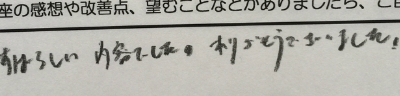 座の感想や改善点、望むことなどがありましたら、ご自
すばらしい内容でした。ありがとうございました。